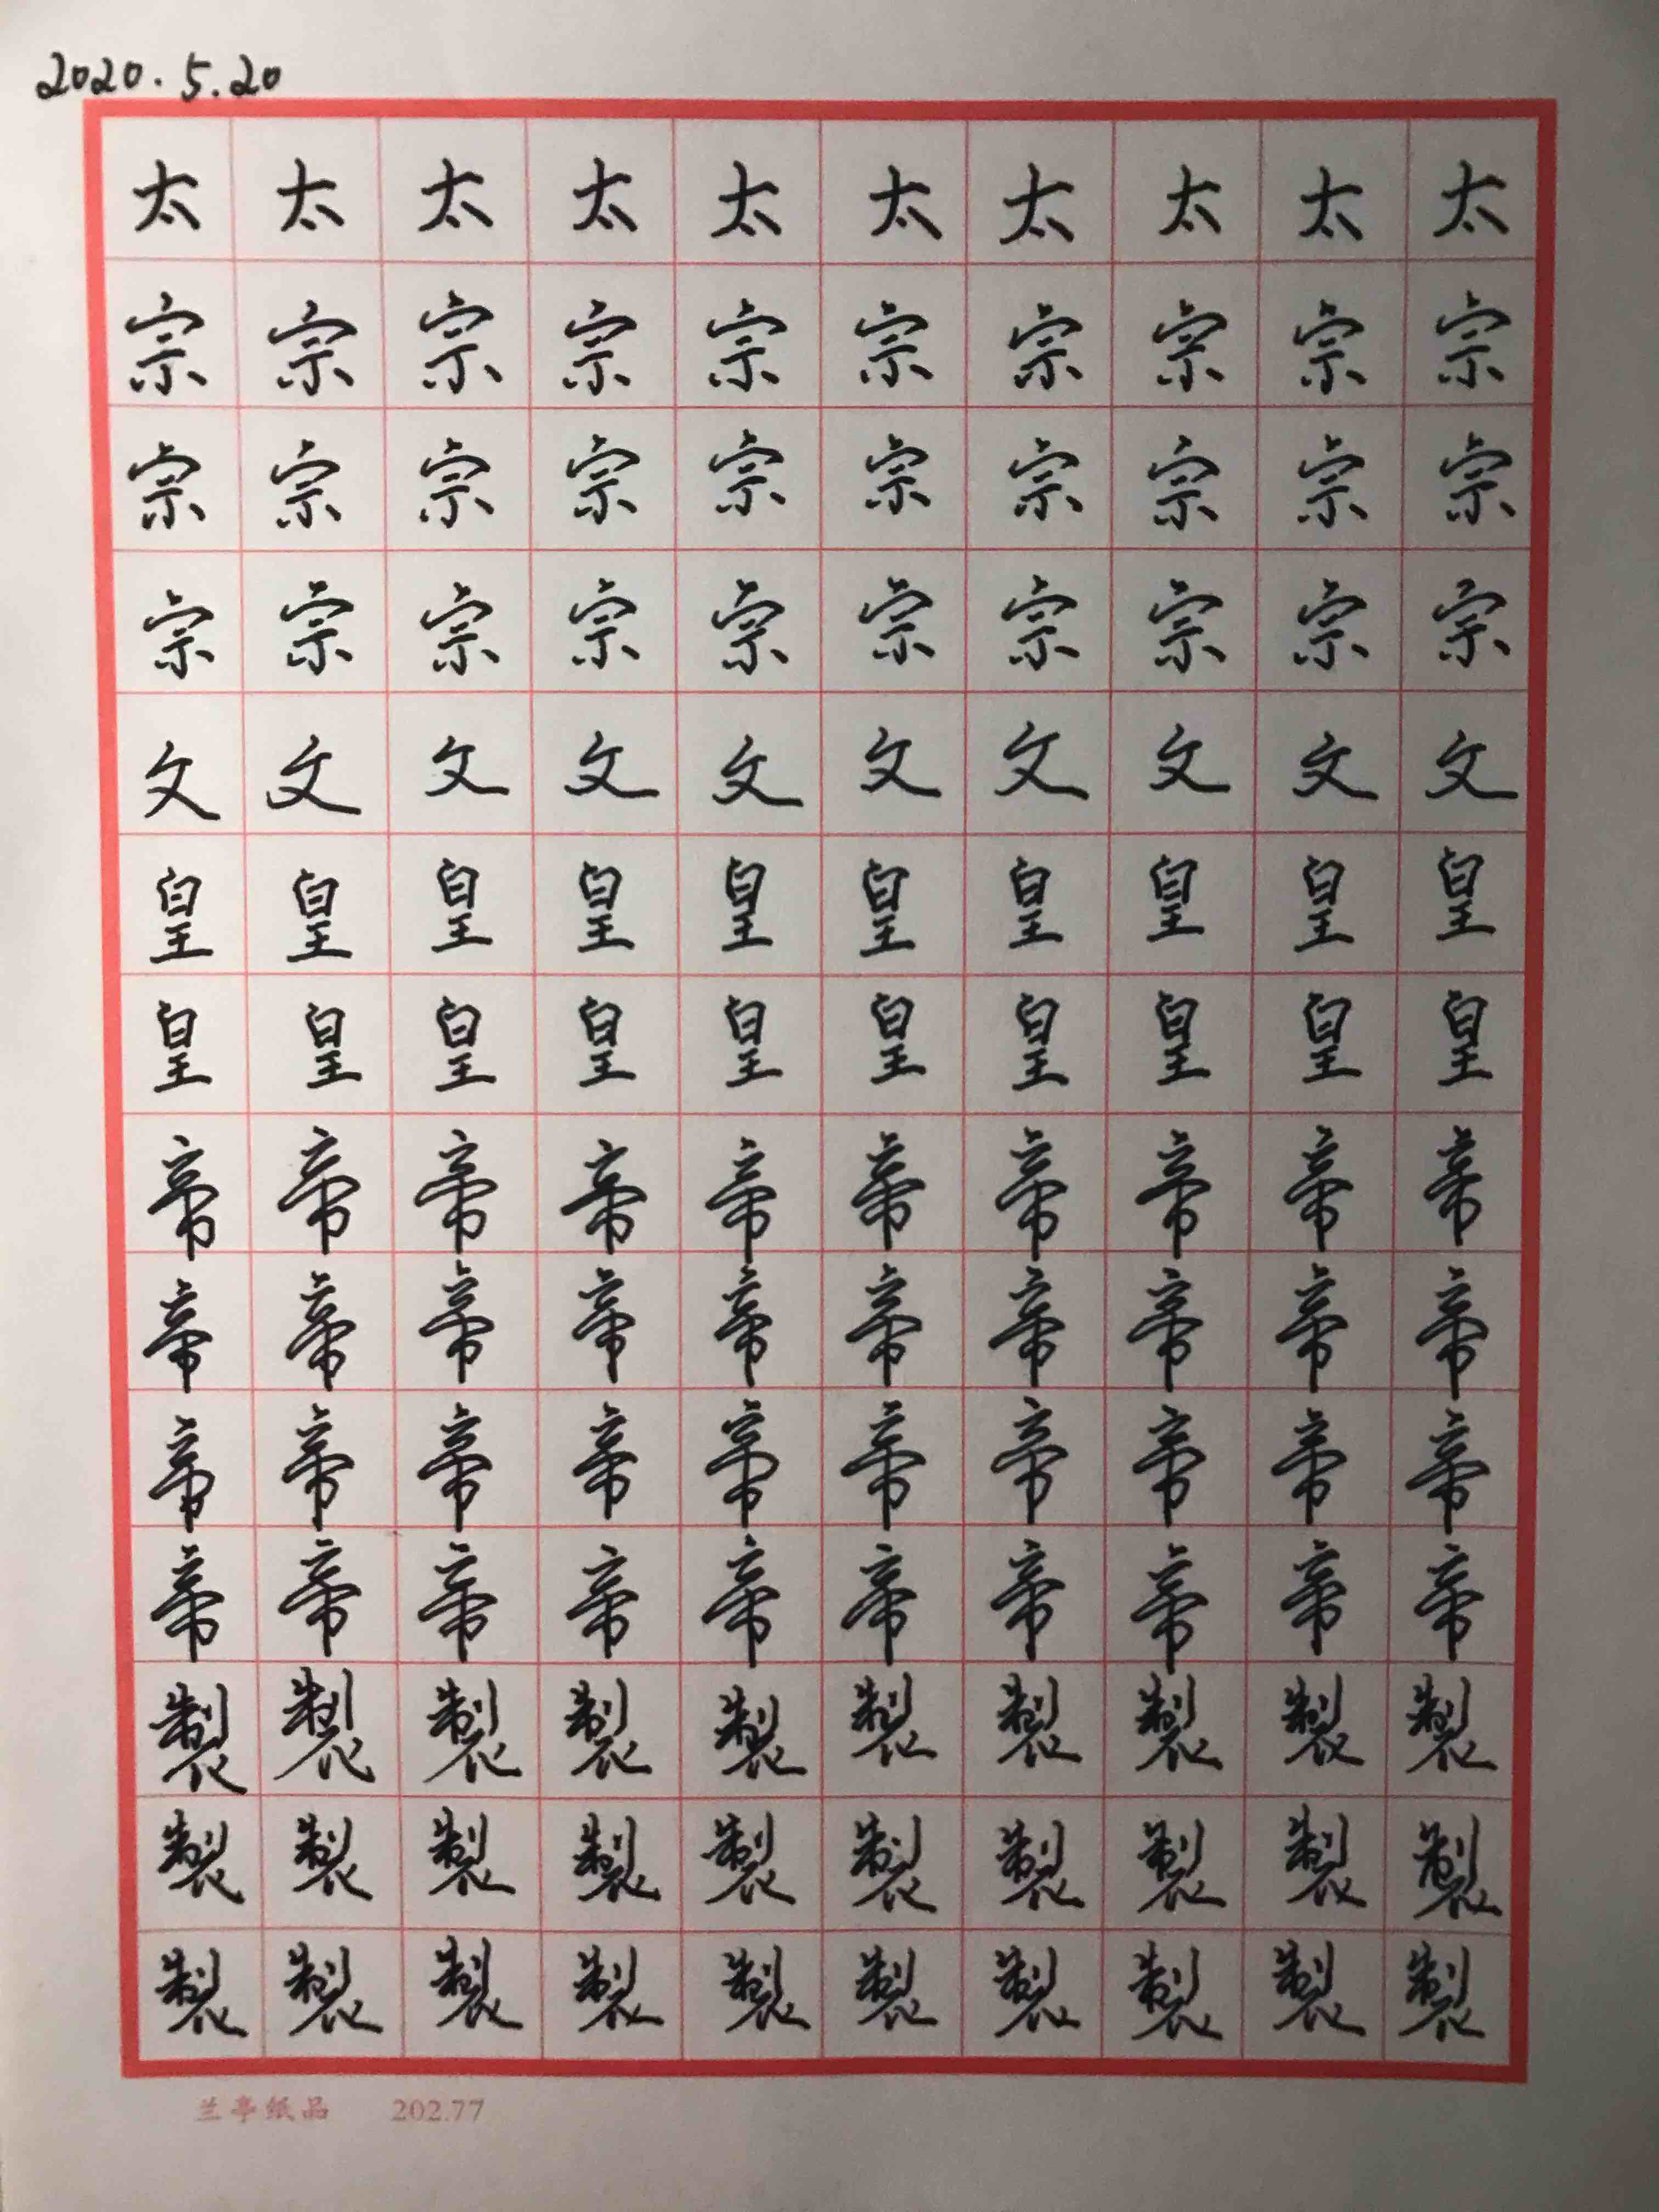 2020.5.20
太太太太太太太太太太
宗宗宗宗宗宗宗宗宗宗
宗宗宗宗宗宗宗宗宗宗
宗宗宗宗宗宗宗宗宗宗
文文文文文文文文文文
皇皇皇皇皇皇皇皇皇皇
皇皇皇皇皇皇皇皇皇皇
帝帝帝帝帝帝帝帝帝帝
帝帝帝帝帝帝帝帝帝帝
帝帝帝帝帝帝帝帝帝帝
帝帝帝帝帝帝帝帝帝帝
製製製製製製製製製製
製製製製製製製製製製
製製製製製製製製製製
兰亭纸品 202.77